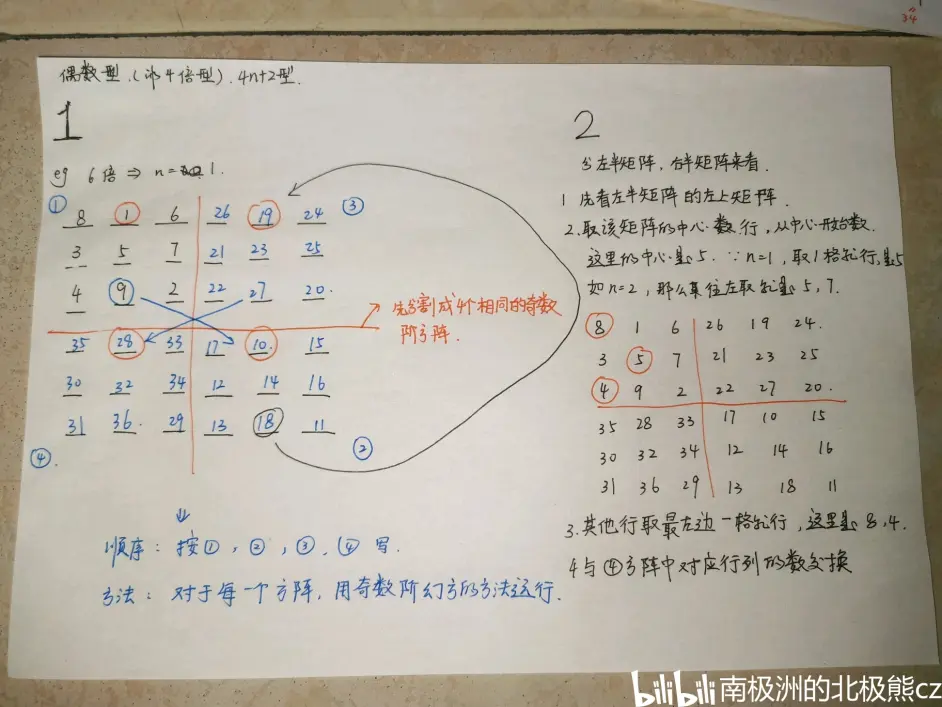 34
偶数型.(非4倍型).4n+2型.
1
eg 6倍 ⇒ n= 1.
① 8 1 6 26 19 24 ③
3 5 7 21 23 25
4 9 2 22 27 20.
35 28 33 17 10. 15
30 32 34 12 14 16
31 36. 29 13 18 11
④. ②
先分割成4个相同的奇数
阶方阵.
顺序: 按①, ②, ③, ④ 写.
方法: 对于每一个方阵, 用奇数阶幻方的方法运行.
2
分左半矩阵, 右半矩阵来看.
1 先看左半矩阵的左上矩阵.
2.取该矩阵的中心数行, 从中心开始数.
这里的中心是5. ∵n=1, 取1格就行,是5
如n=2, 那么集位左取就是5,7.
8 1 6 26 19 24.
3 5 7 21 23 25
4 9 2 22 27 20.
35 28 33 17 10 15
30 32 34 12 14 16
31 36 29 13 18 11
3.其他行取最左边一格就行, 这里是8,4.
4与④方阵中对应行列的数交换
bilibili 南极洲的北极熊cz